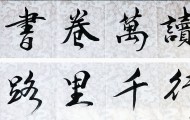 讀萬卷書
行千里路